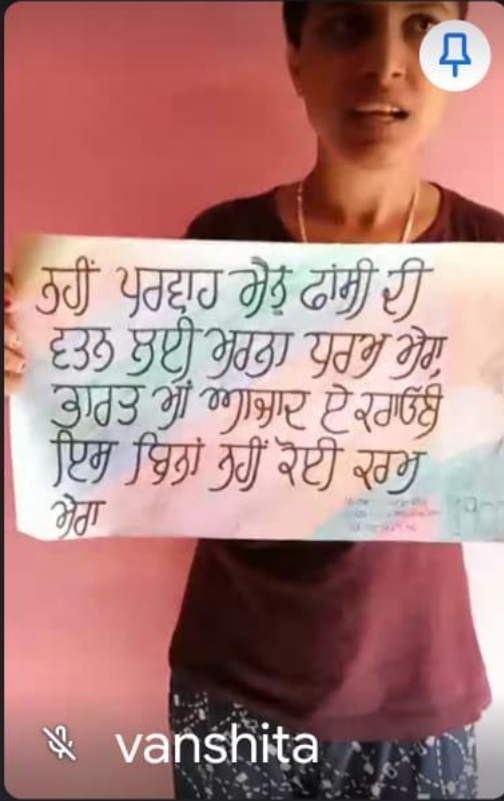 ਨਹੀਂ ਪਰਵਾਹ ਮੈਨੂੰ ਫਾਂਸੀ ਦੀ
ਵਤਨ ਲਈ ਮਰਨਾ ਧਰਮ ਮੇਰਾ
ਭਾਰਤ ਮਾਂ ਆਜ਼ਾਦ ਏ ਕਰਾਓਣੀ
ਇਸ ਬਿਨਾਂ ਨਹੀਂ ਕੋਈ ਕਰਮ
ਮੇਰਾ
vanshita